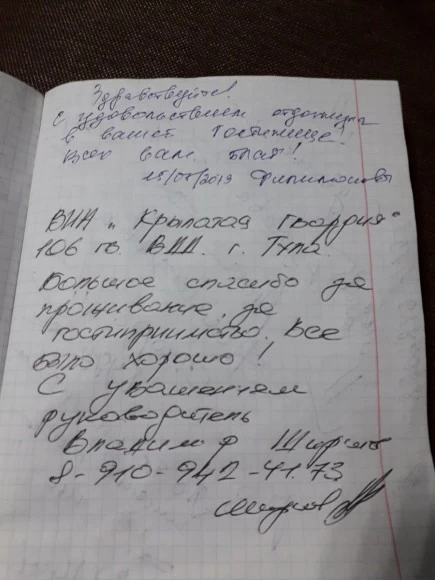 Здравствуйте!
С удовольствием отдохнули
в вашей гостинице.
Всех вам благ!
15/07/2019 Филипповы
ВИК "Крылатая гвардия"
106 гв. ВДД. г. Тула.
Большое спасибо за
проживание, за
гостиприимство. Все
было хорошо!
С уважением
руководитель
Владимир
8-910-942-41.73